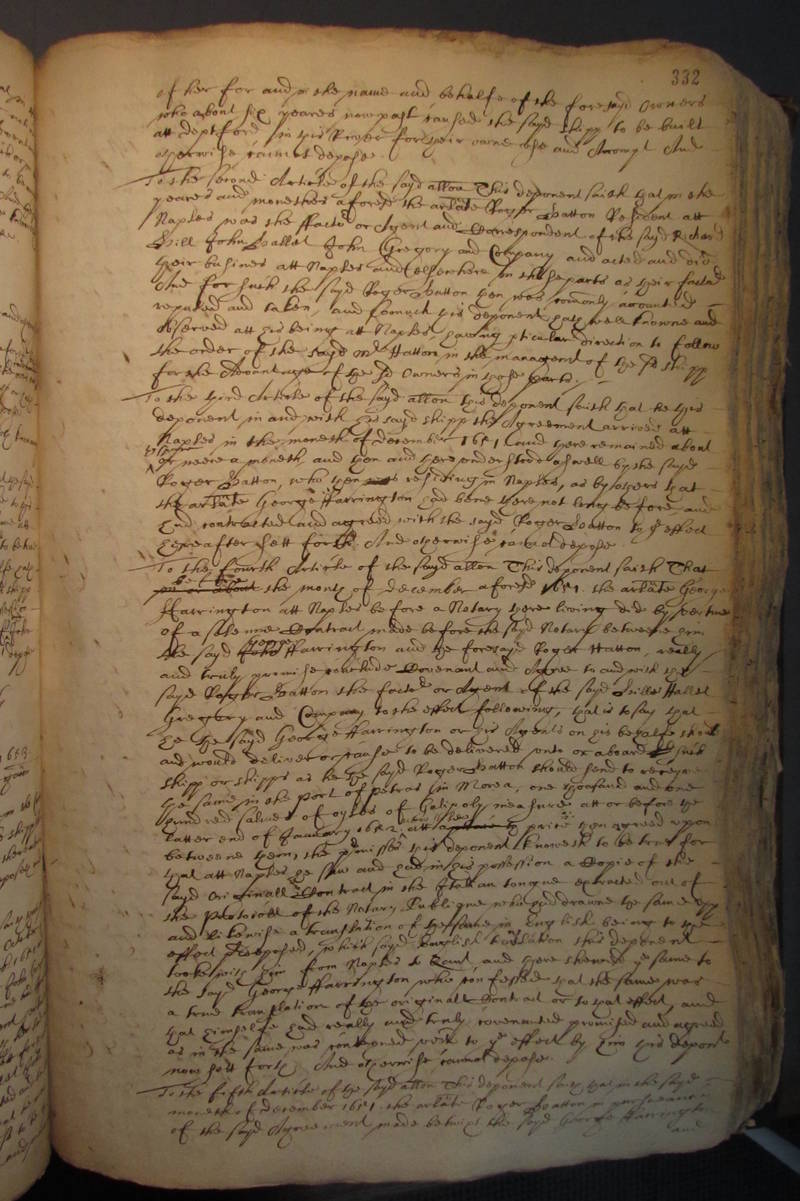 332
of her for and in the name and behalfe of the foresayd Owners
who about six yeares now past caused the sayd shipp to be built
att deptford in this River for their owne use and Accompt And
otherwise cannot depose.
To the second Article of the sayd allon This deponent saith that in the
yeares and monethes aforesd the arlate Roger Hatton Resident att
Naples was the ffactor or Agent and Correspondent of the sayd Richard
Hill John Hallet John Gregory and Company and acted and did
their busines att Naples and elsewhere in those parts as their factor
And for such the sayd Roger Hatton then was comonly accounted
reputed and taken, and somuch this deponent hath well knowne and
observed att his being att Naples, having pticular direction to follow
the order of the sayd mr Hatton in the managemt of the sd shipp
for the Advantage of the sd Owners in those parts.
To the third Article of the sayd allon this deponent saith that he this
deponent in and with his sayd shipp the Agreement arrived att
Naples in the moneth of december 1651 and there remained about
or neere a moneth, and then and there understood aswell by the sayd
Roger Hatton, who then was residing in Naples, as by others that
the arlate George Harrington had bene there not long before and
had contracted and agreed with the sayd Roger Hatton to ye effect
hereafter sett forth. And otherwise cannot depose.
To the fourth Article of the sayd allon This deponent saith That
before
in or about the month of december aforesd 1651. the arlate George
Harrington att Naples before a Notary there living did by vertue
of a solemne Contract made before the sayd Notary betweene him
the sayd George Harrington and the foresayd Roger Hatton, really
and truly promise conclude Covenant and Agree to and with the
sayd Roger Hatton the factor or Agent of the sayd Hill Hallet
Gregory and Company to the effect following, that is to say that
he the sayd George Harrington or his Agents on his behalfe should
and would deliver or cause to be delivered unto or aboard such
shipp or shipps as he the sayd Roger Hatton should send to receive
the same in the Port of Petras in Morea, one thousand and one
hundred salmes of oyles of Galipoly measure att or before the
latter end of January 1652. att a price then agreed upon
betweene them, the pmisses this deponent knoweth to be true for
that att Naples he saw and had in his possession a Copie of the
sayd Originall Contract in the Italian tongue extracted out of
the Protocoll of the Notary Publique who had drawne the same upp
and likewise a translation of the same in English being to the
effect predeposed, which sayd English translation this deponent
tooke with him from Naples to Zant, and there shewed ye same to
the sayd George Harrington who confessed that the same was
a true translation of the originall Contract or to that effect, and
that himselfe had really and truly covenanted promised and agreed
as in the same was conteyned with to ye effect by him this deponent
now sett forth, And otherwise cannot depose.
To the fifth Article of the sayd allon This deponent saith that in the sayd
moneth of december 1651. the arlate Roger Hatton in pursuance
of the sayd Agreement made betwixt the sayd George Harrington
and